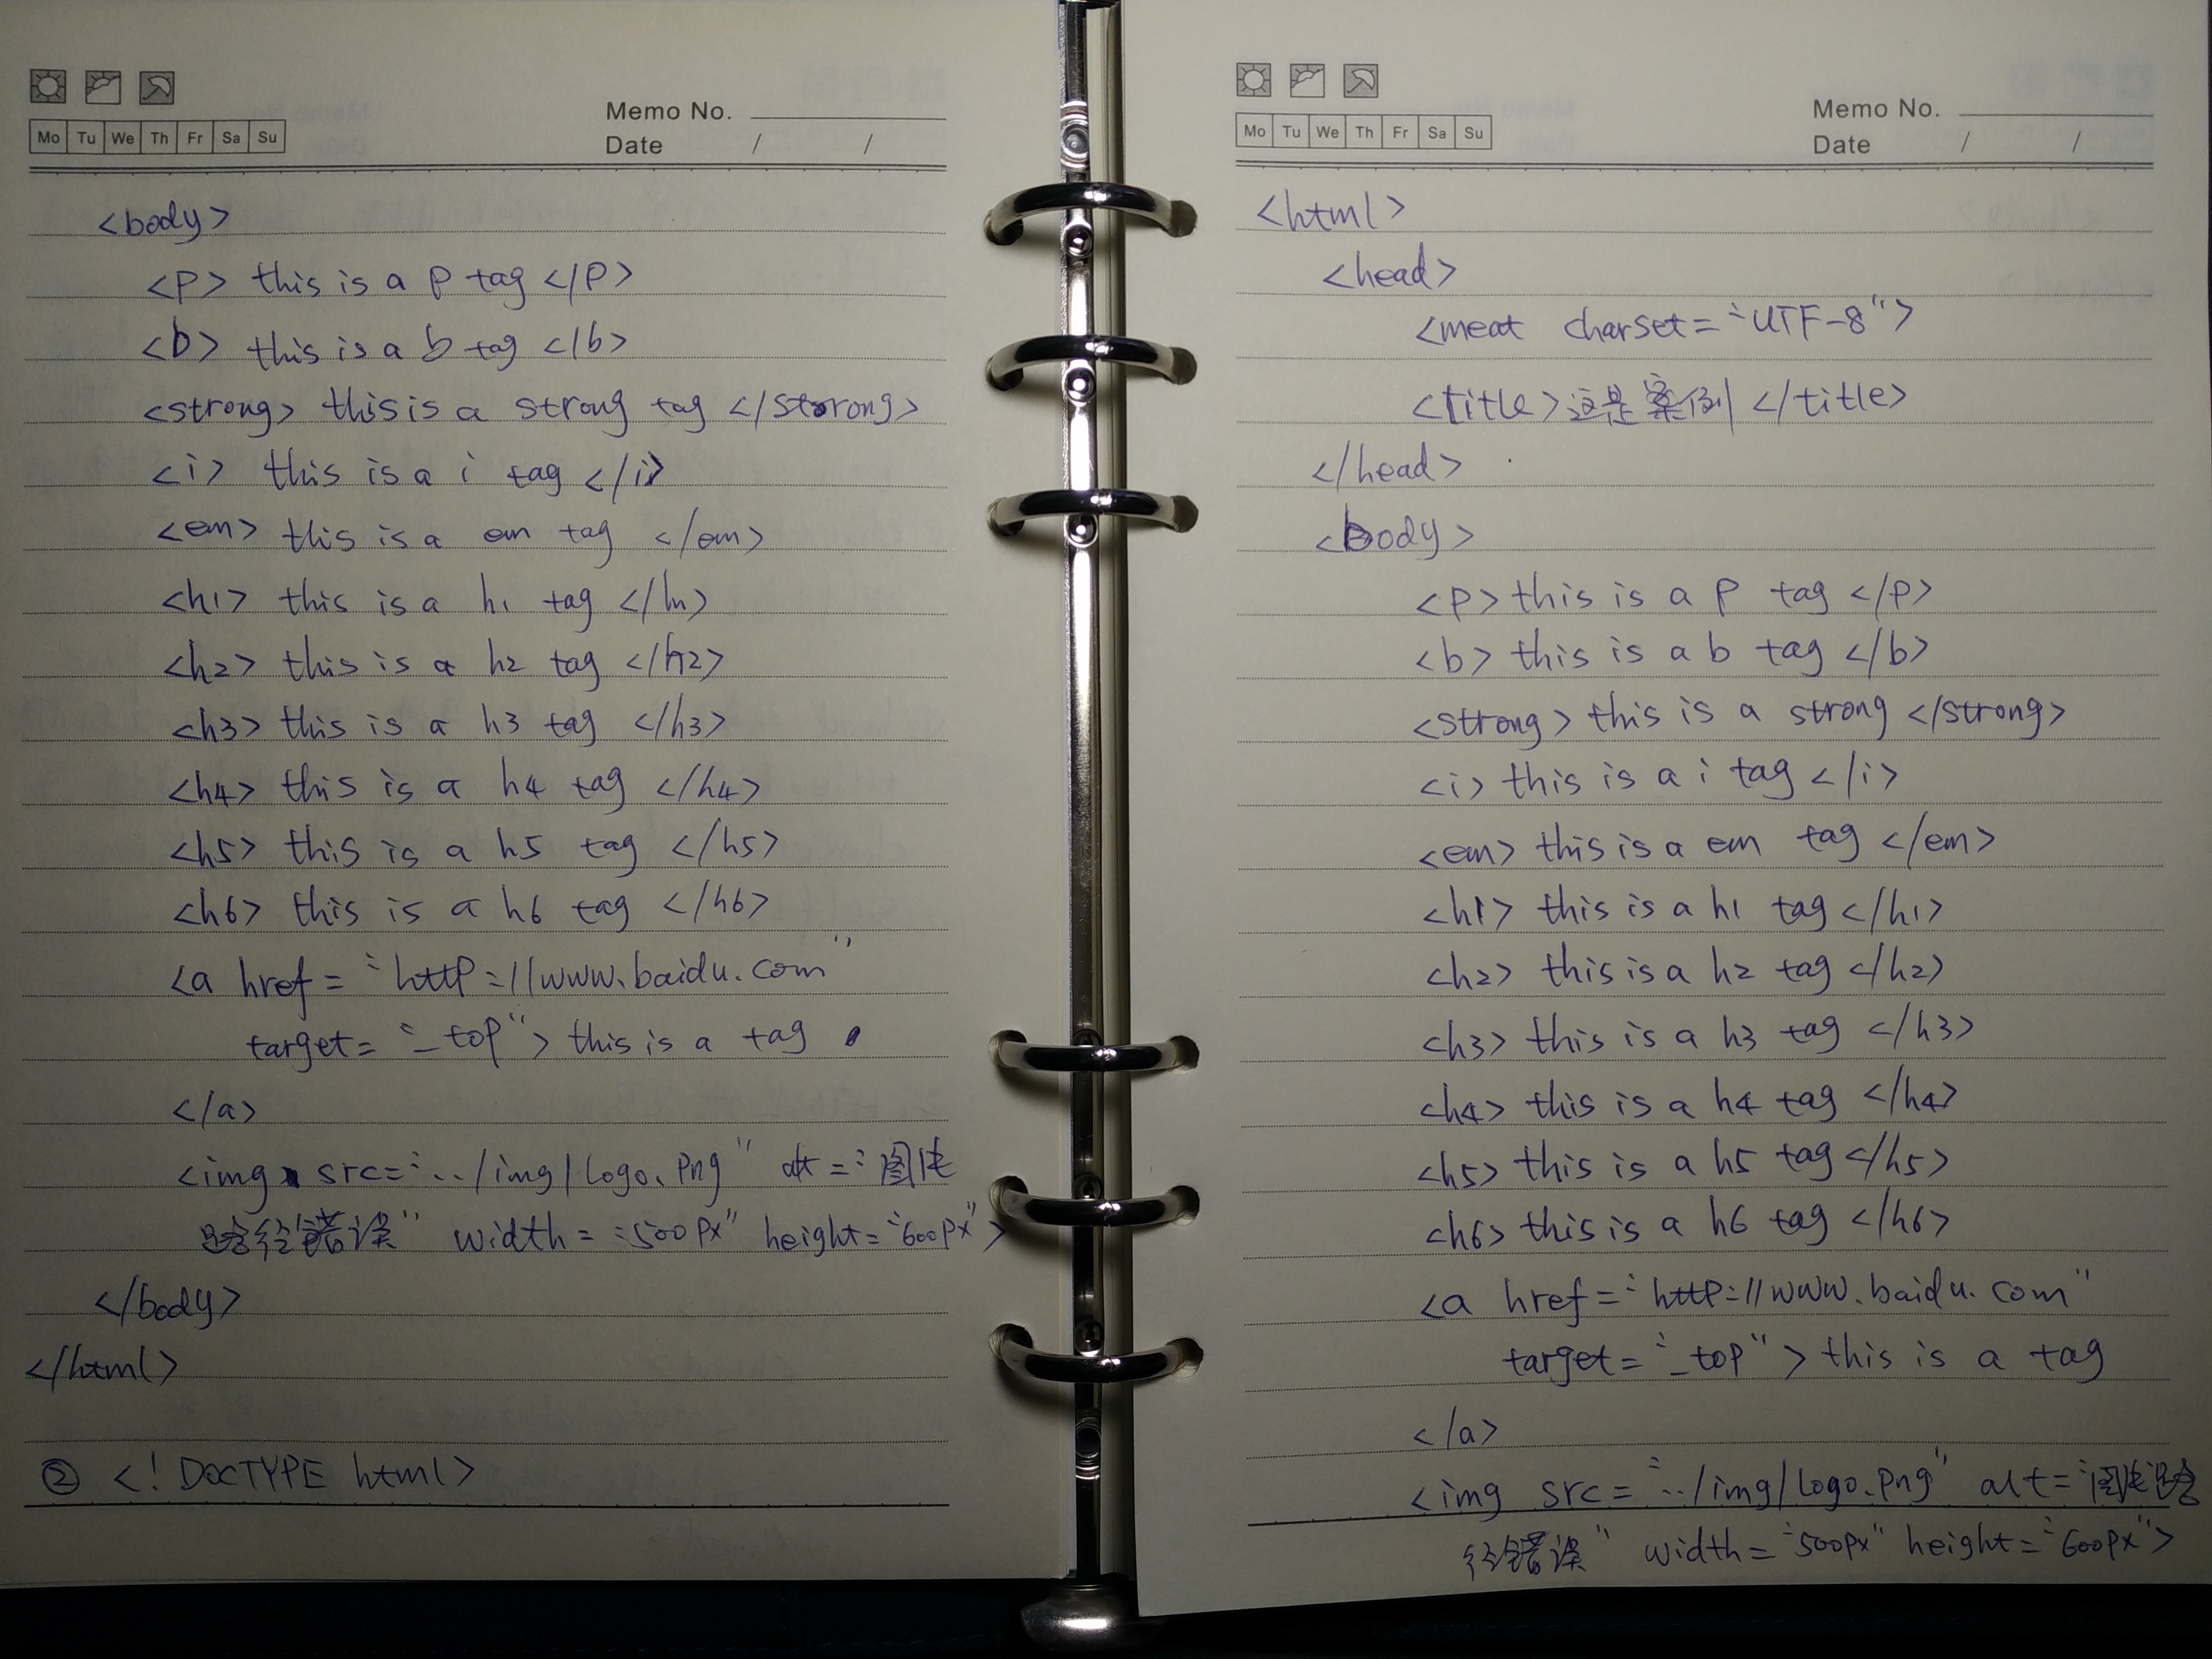 Memo No.
Mo Tu We Th Fr Sa Su
Date / /
<body>
<p> this is a p tag </p>
<b> this is a b tag </b>
<strong> this is a strong tag </strong>
<i> this is a i tag </i>
<em> this is a em tag </em>
<h1> this is a h1 tag </h1>
<h2> this is a h2 tag </h2>
<h3> this is a h3 tag </h3>
<h4> this is a h4 tag </h4>
<h5> this is a h5 tag </h5>
<h6> this is a h6 tag </h6>
<a href = "http://www.baidu.com"
target = "_top"> this is a tag
</a>
<img src="../img/logo.png" alt="图片
路径错误" width="500px" height="600px">
</body>
</html>
② <!DOCTYPE html>
Memo No.
Mo Tu We Th Fr Sa Su
Date / /
<html>
<head>
<meat charset="UTF-8">
<title>这是案例</title>
</head>
<body>
<p> this is a p tag </p>
<b> this is a b tag </b>
<strong> this is a strong </strong>
<i> this is a i tag </i>
<em> this is a em tag </em>
<h1> this is a h1 tag </h1>
<h2> this is a h2 tag </h2>
<h3> this is a h3 tag </h3>
<h4> this is a h4 tag </h4>
<h5> this is a h5 tag </h5>
<h6> this is a h6 tag </h6>
<a href="http://www.baidu.com"
target="_top"> this is a tag
</a>
<img src="../img/logo.png" alt="图片路
径错误" width="500px" height="600px">